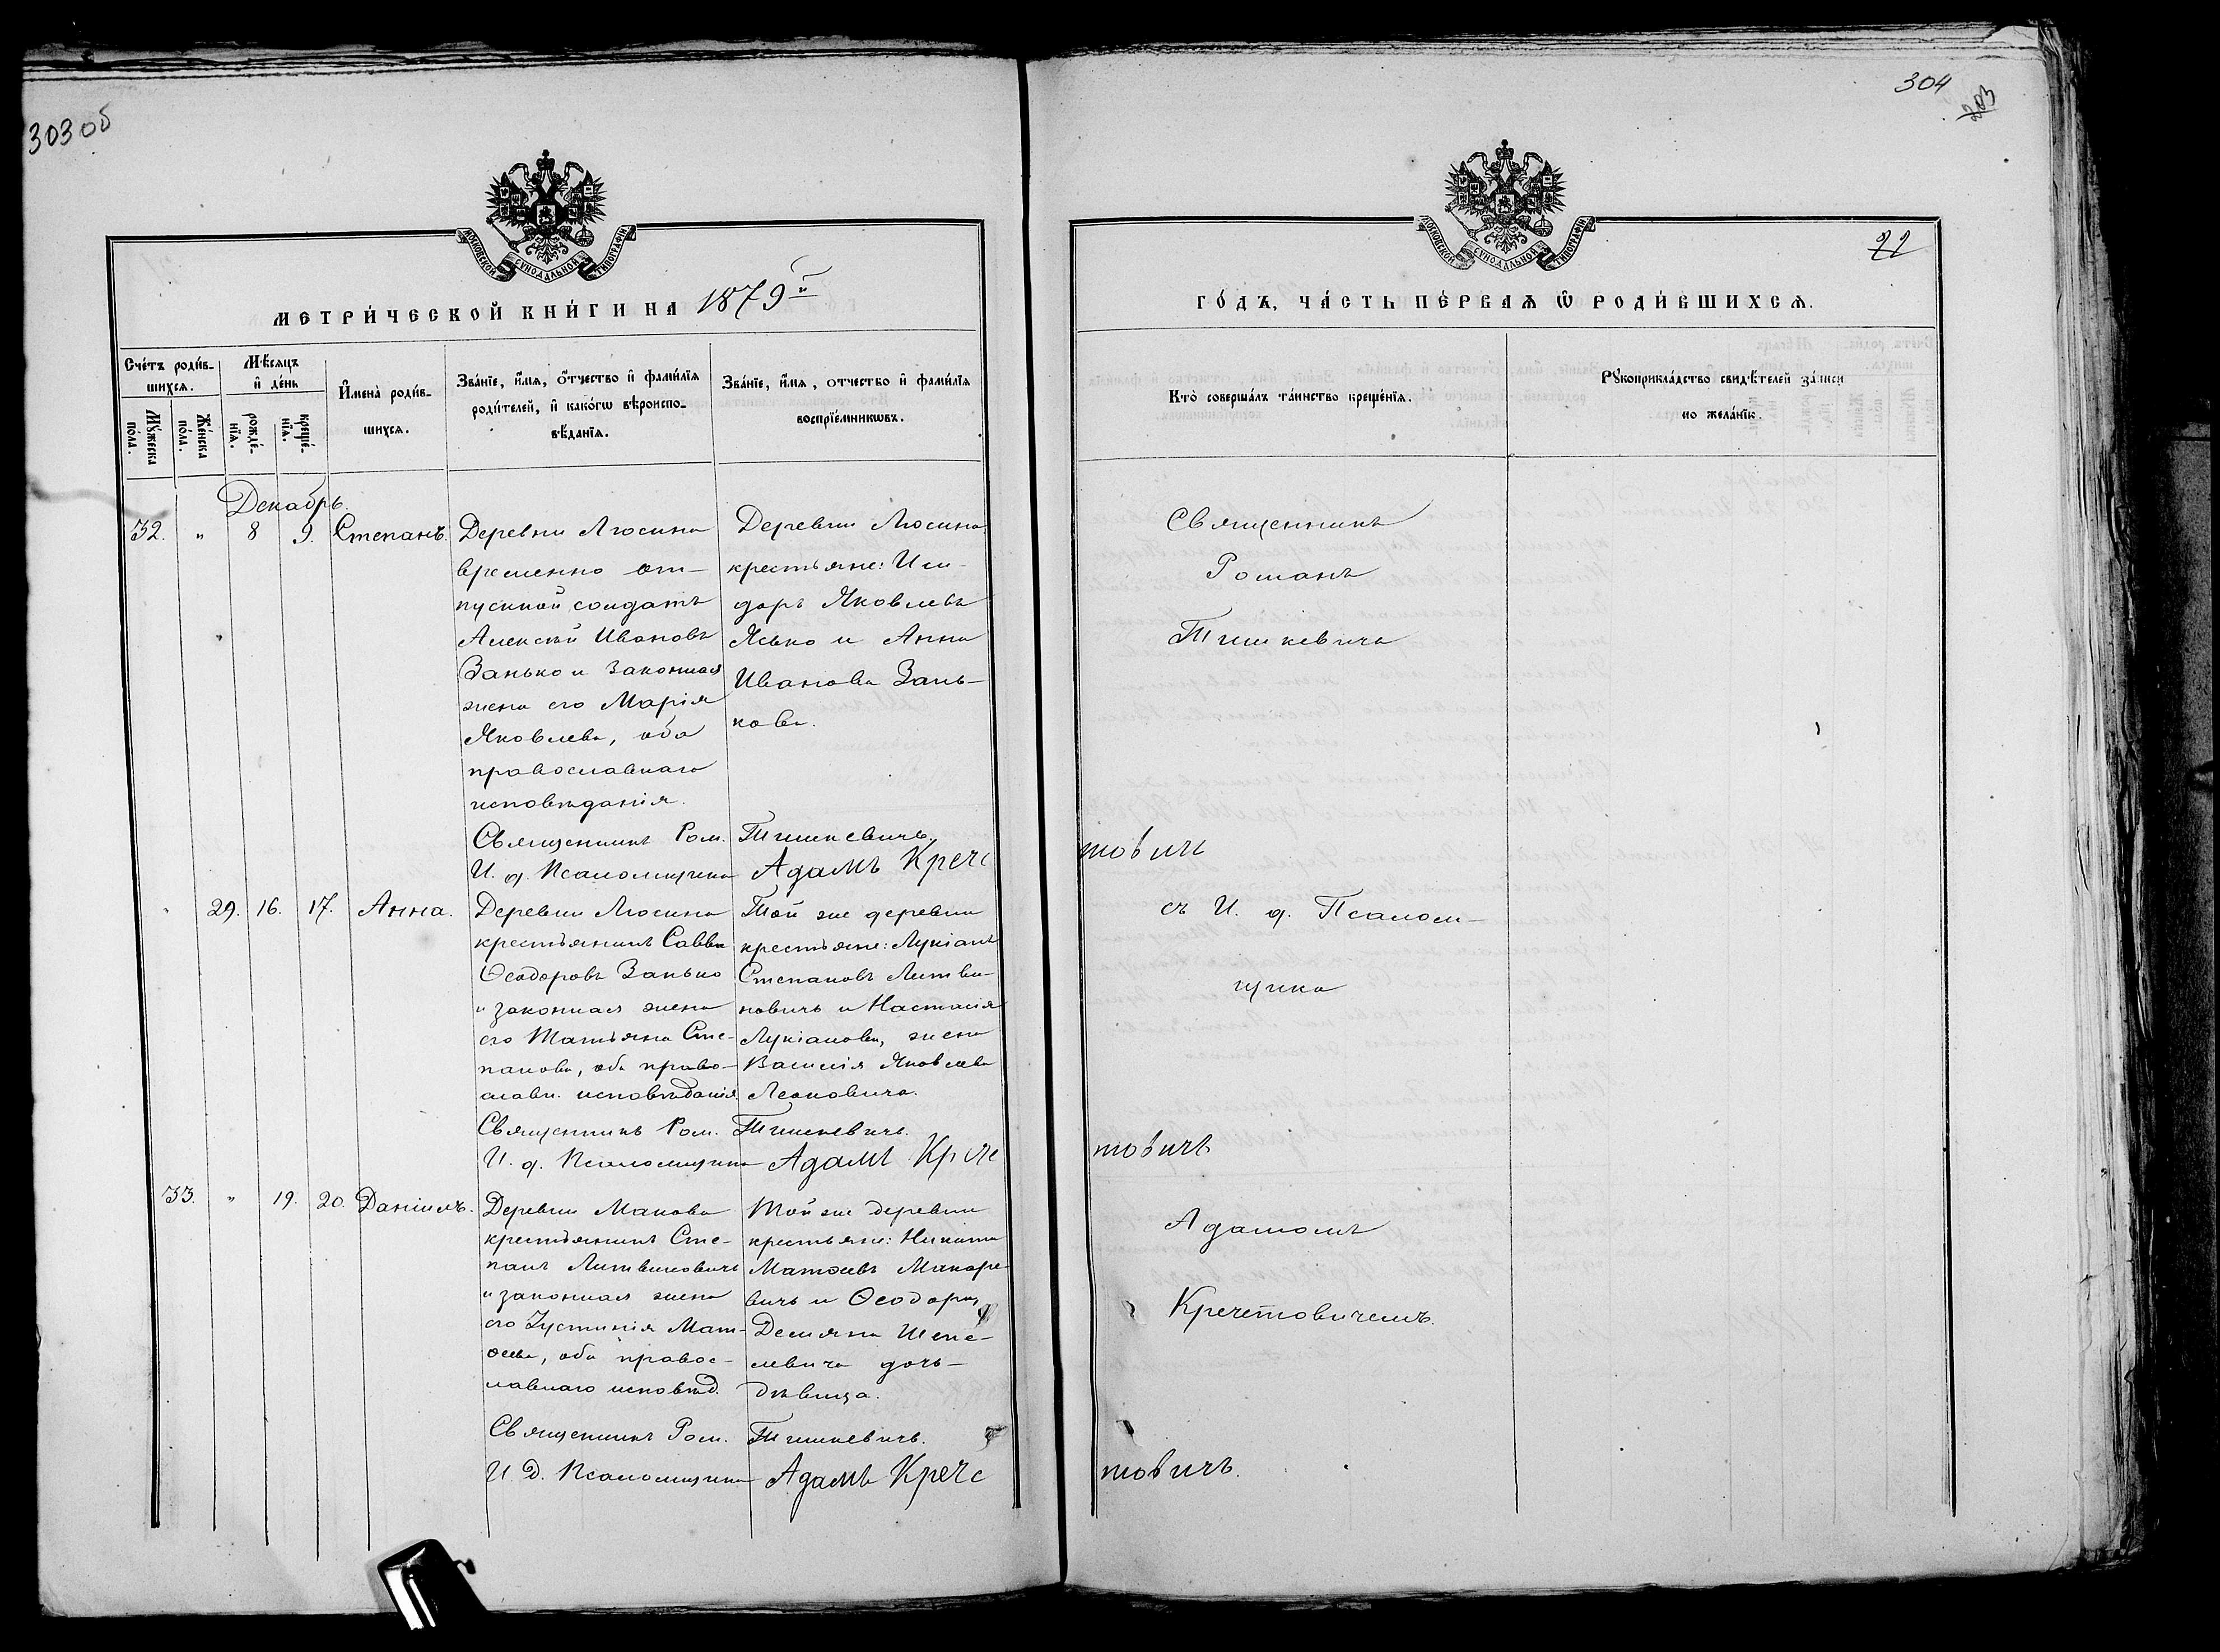 303 об
304
203
МОСКОВСКОЙ СѴНОДАЛЬНОЙ ТИПОГРАФІИ
МОСКОВСКОЙ СѴНОДАЛЬНОЙ ТИПОГРАФІИ
22
МЕТРИ́ЧЕСКОЙ КНИ́ГИ НА 1879й
ГО́ДЪ, ЧА́СТЬ ПЕ́РВАѦ Ѽ РОДИ́ВШИХСѦ.
Сче́тъ роди́в-
шихсѧ.
Мꙋ́жеска пола.
Же́нска по́ла.
Мѣ́сѧцъ и҆ де́нь
рожде́-нїѧ.
креще́-нїѧ.
И҆мена̀ роди́в-
шихсѧ.
Зва́нїе, и҆́мѧ, ѻ҆́тчество и҆ фами́лїѧ
роди́телей, и҆ како́гѡ вѣ́роиспо-
вѣ́данїѧ.
Зва́нїе, и҆́мѧ, отчество и҆ фами́лїѧ
воспрїе́мникѡвъ.
Кто̀ соверша́лъ та́инство креще́нїѧ.
Рꙋкоприкла́дство свидѣ́телей за́писи
по жела́нїю.
Декабрь.
32. " 8 9. Степанъ.
Деревни Люсина
временно от-
пускной солдатъ
Алексѣй Ивановъ
Занько и законная
жена его Марія
Яковлева, оба
православнаго
исповѣданія.
Деревни Люсина
крестьяне: Иси-
доръ Яковлевъ
Ясько и Анна
Иванова Зань-
кова.
Священникъ
Романъ
Тишкевичъ
Священникъ Ром. Тишкевичъ.
И. д. Псаломщика Адамъ Крече
товичъ
29. 16. 17. Анна.
Деревни Люсина
крестьянинъ Савва
Ѳеодоровъ Занько
и законная жена
его Татьяна Сте-
панова, оба право-
славн. исповѣданія.
Той же деревни
крестьяне: Лукіанъ
Степановъ Литви-
новичъ и Настасія
Лукіанова, жена
Василія Яковлева
Леоновича.
съ И. д. Псалом-
щика
Священникъ Ром. Тишкевичъ.
И. д. Псаломщика Адамъ Крече
товичъ
33. " 19. 20. Даніилъ.
Деревни Макова
крестьянинъ Сте-
панъ Литвиновичъ
и законная жена
его Іустинія Мат-
ѳеева, оба правос-
лавнаго исповѣд.
Той же деревни
крестьяне: Никита
Матѳеевъ Макаре-
вичъ и Ѳеодора,
Демяна Шепе-
левича дочь-
дѣвица.
Адамомъ
Кречетовичемъ.
Священникъ Ром. Тишкевичъ.
И. Д. Псаломщика Адамъ Крече
товичъ.